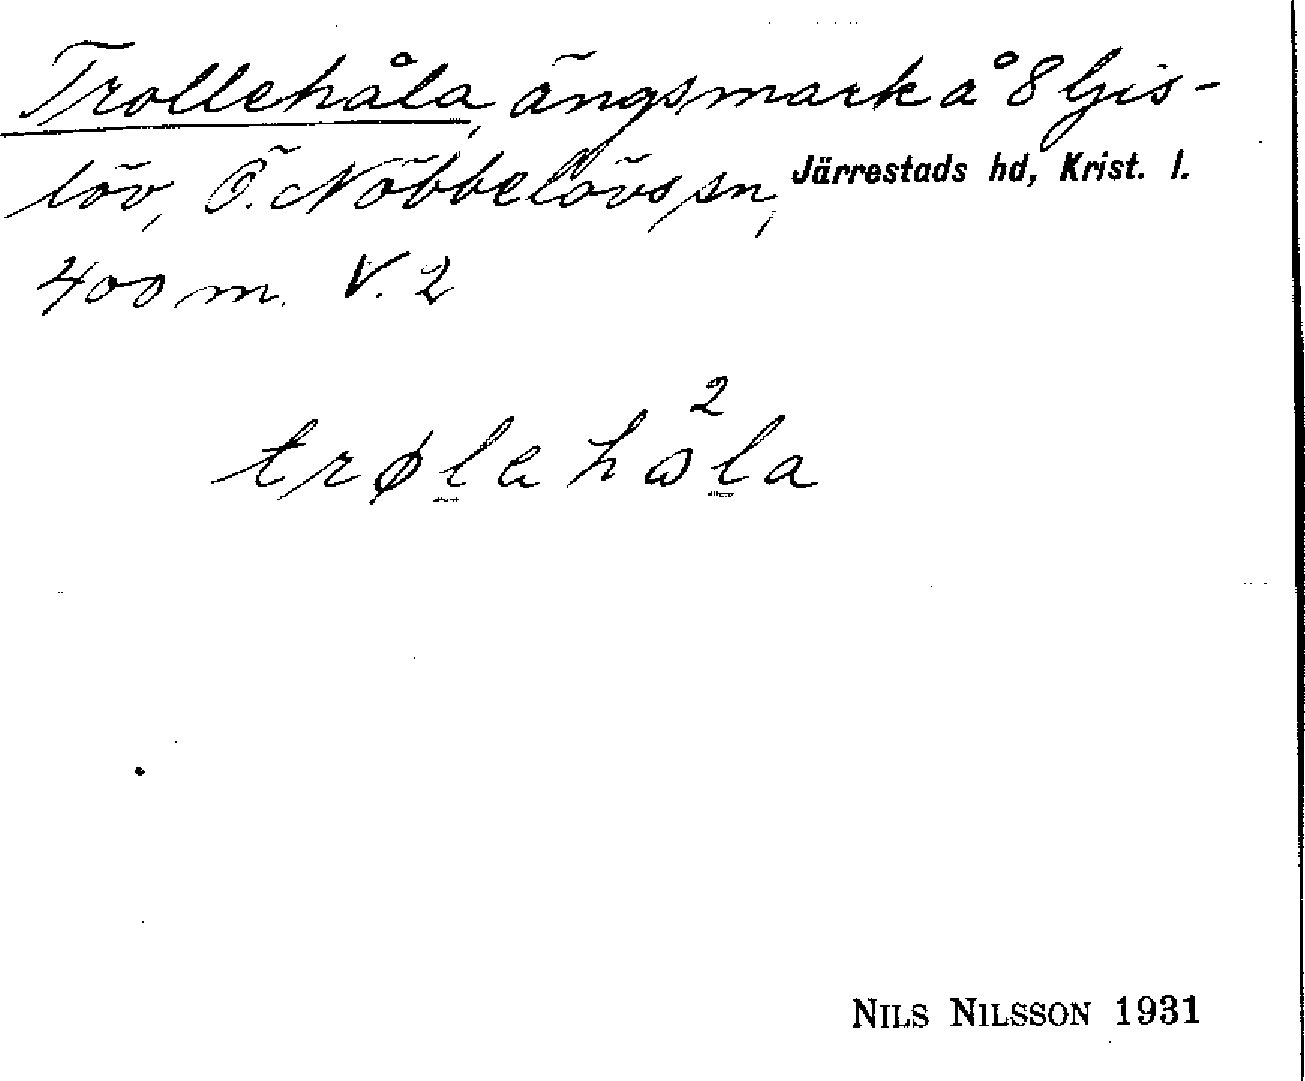 Trollehåla, ängsmark å 8 Gis-
löv, Ö. Nöbbelövs sn, Järrestads hd, Krist. l.
400 m. V. 2
2
trøla hωla
NILS NILSSON 1931